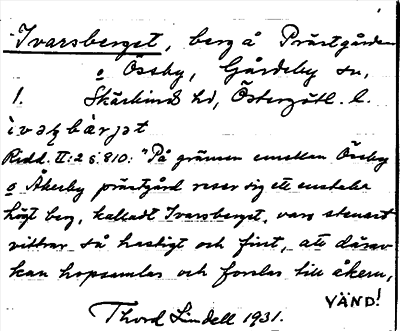 Ivarsberget, berg å Prästgården
o Össby, Gårdeby sn,
1. Skärkinds hd, Östergötl. l.
ivaʂbärjət
Ridd. II:2 s. 810: "På gränsen emellan Össby
o Åkerby prästgård reser sig ett enstaka
högt berg, kalladt Ivarsberget, vars stenart
vittrar så hastigt och fint, att därav
kan hopsamlas och forslas till åkern,
VÄND!
Thord Lindell 1931.